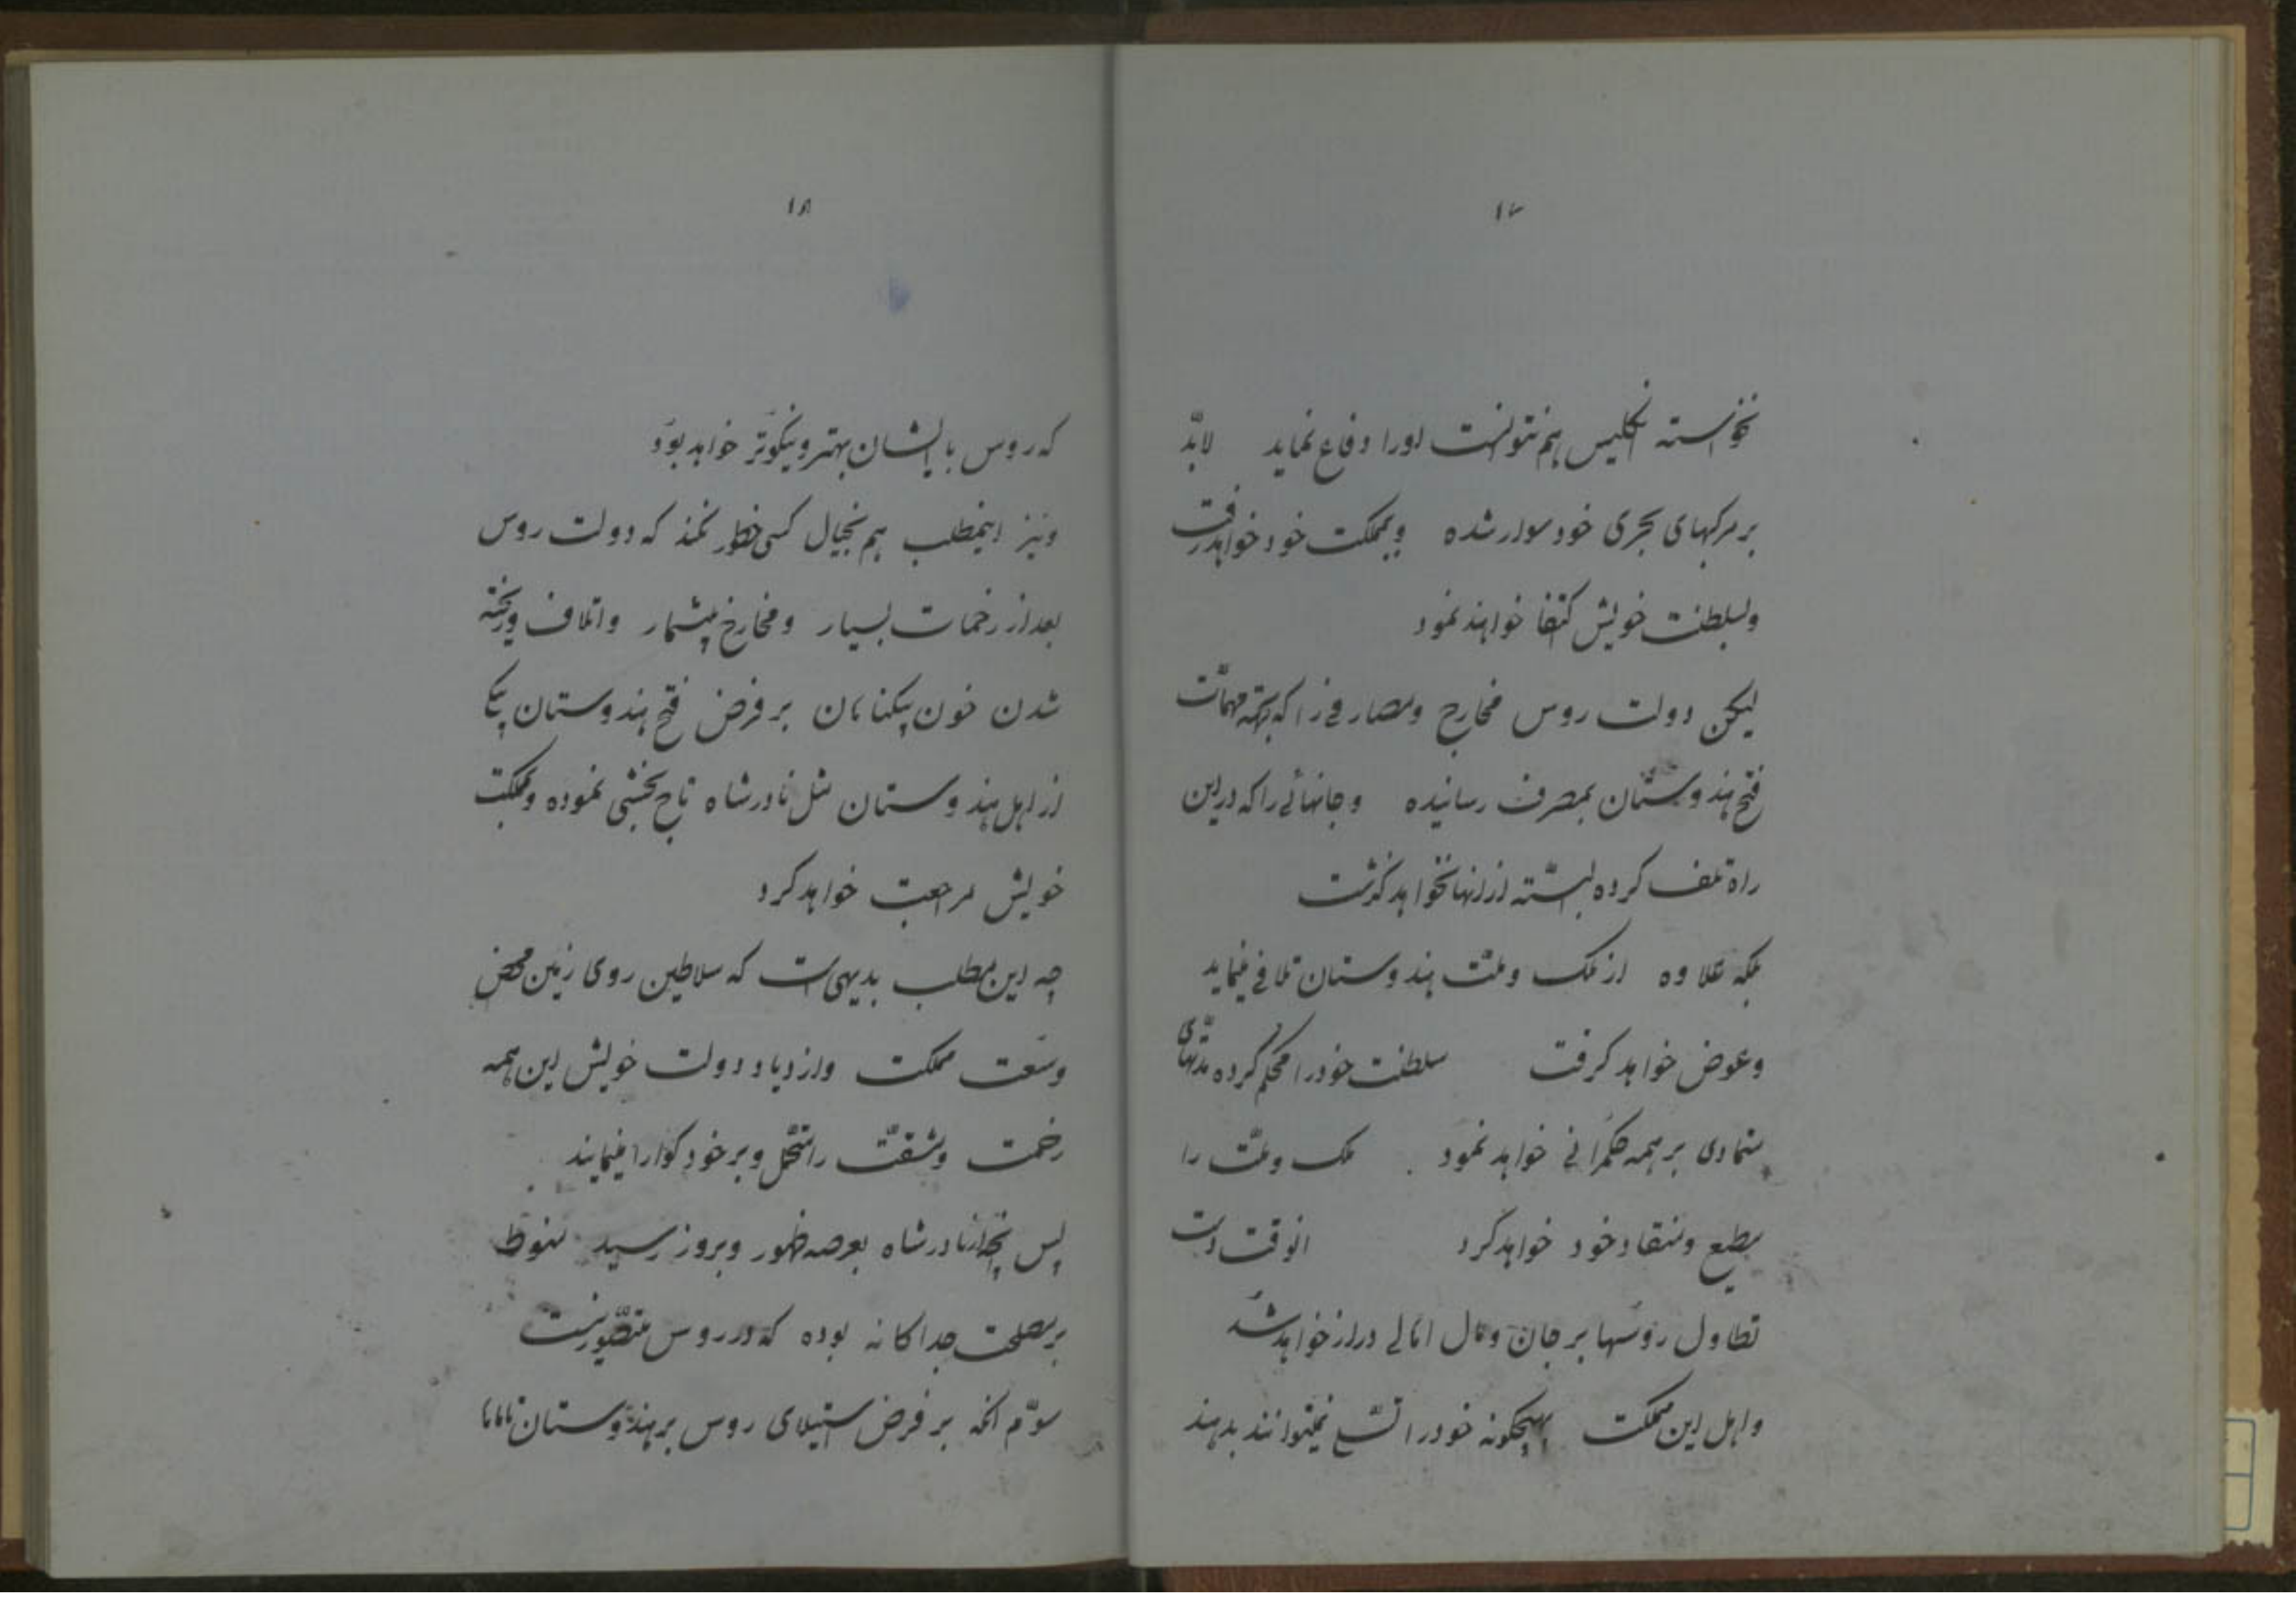 ۱۷
نخواسته انگلیس هم نتوانست اورا دفاع نماید لابدّ
بر مرکبهای بحری خود سوار شده و بمملکت خود خواهد رفت
و بسلطنت خویش اکتفا خواهند نمود
لیکن دولت روس مخارج و مصارفی را که بجهة مهمّات
فتح هندوستان بمصرف رسانیده و جانهائی را که در این
راه تلف کرده البتّه از آنها نخواهد گذشت
بلکه علاوه از ملک و ملّت هندوستان تلافی مینماید
و عوض خواهد گرفت سلطنت خود را محکم کرده مدّتهای
متمادی بر همه حکمرانی خواهد نمود ملک و ملّت را
مطیع و منقاد خود خواهد کرد انوقت دست
تطاول روسها بر جان و مال اهالی دراز خواهد شد
و اهل این مملکت بهیچگونه خود را تسلّی نمیتوانند بدهند
۱۸
که روس بایشان بهتر و نیکوتر خواهد بود
و نیز اینمطلب هم بخیال کسی خطور نکند که دولت روس
بعد از زحمات بسیار و مخارج بیشمار و اتلاف و ریخته
شدن خون بیگناهان بر فرض فتح هندوستان بیکی
از اهل هندوستان مثل نادرشاه تاج بخشی نموده و بمملکت
خویش مراجعت خواهد کرد
چه این مطلب بدیهی است که سلاطین روی زمین محض
وسعت مملکت و ازدیاد دولت خویش این همه
زحمت و مشقّت را متحمّل و بر خود گوارا مینمایند
پس آنچه از نادرشاه بعرصه ظهور و بروز رسید منوط
بر مصلحت جداگانه بوده که در روس متصّور نیست
سوّم آنکه بر فرض استیلای روس بر هندوستان تا اهالی